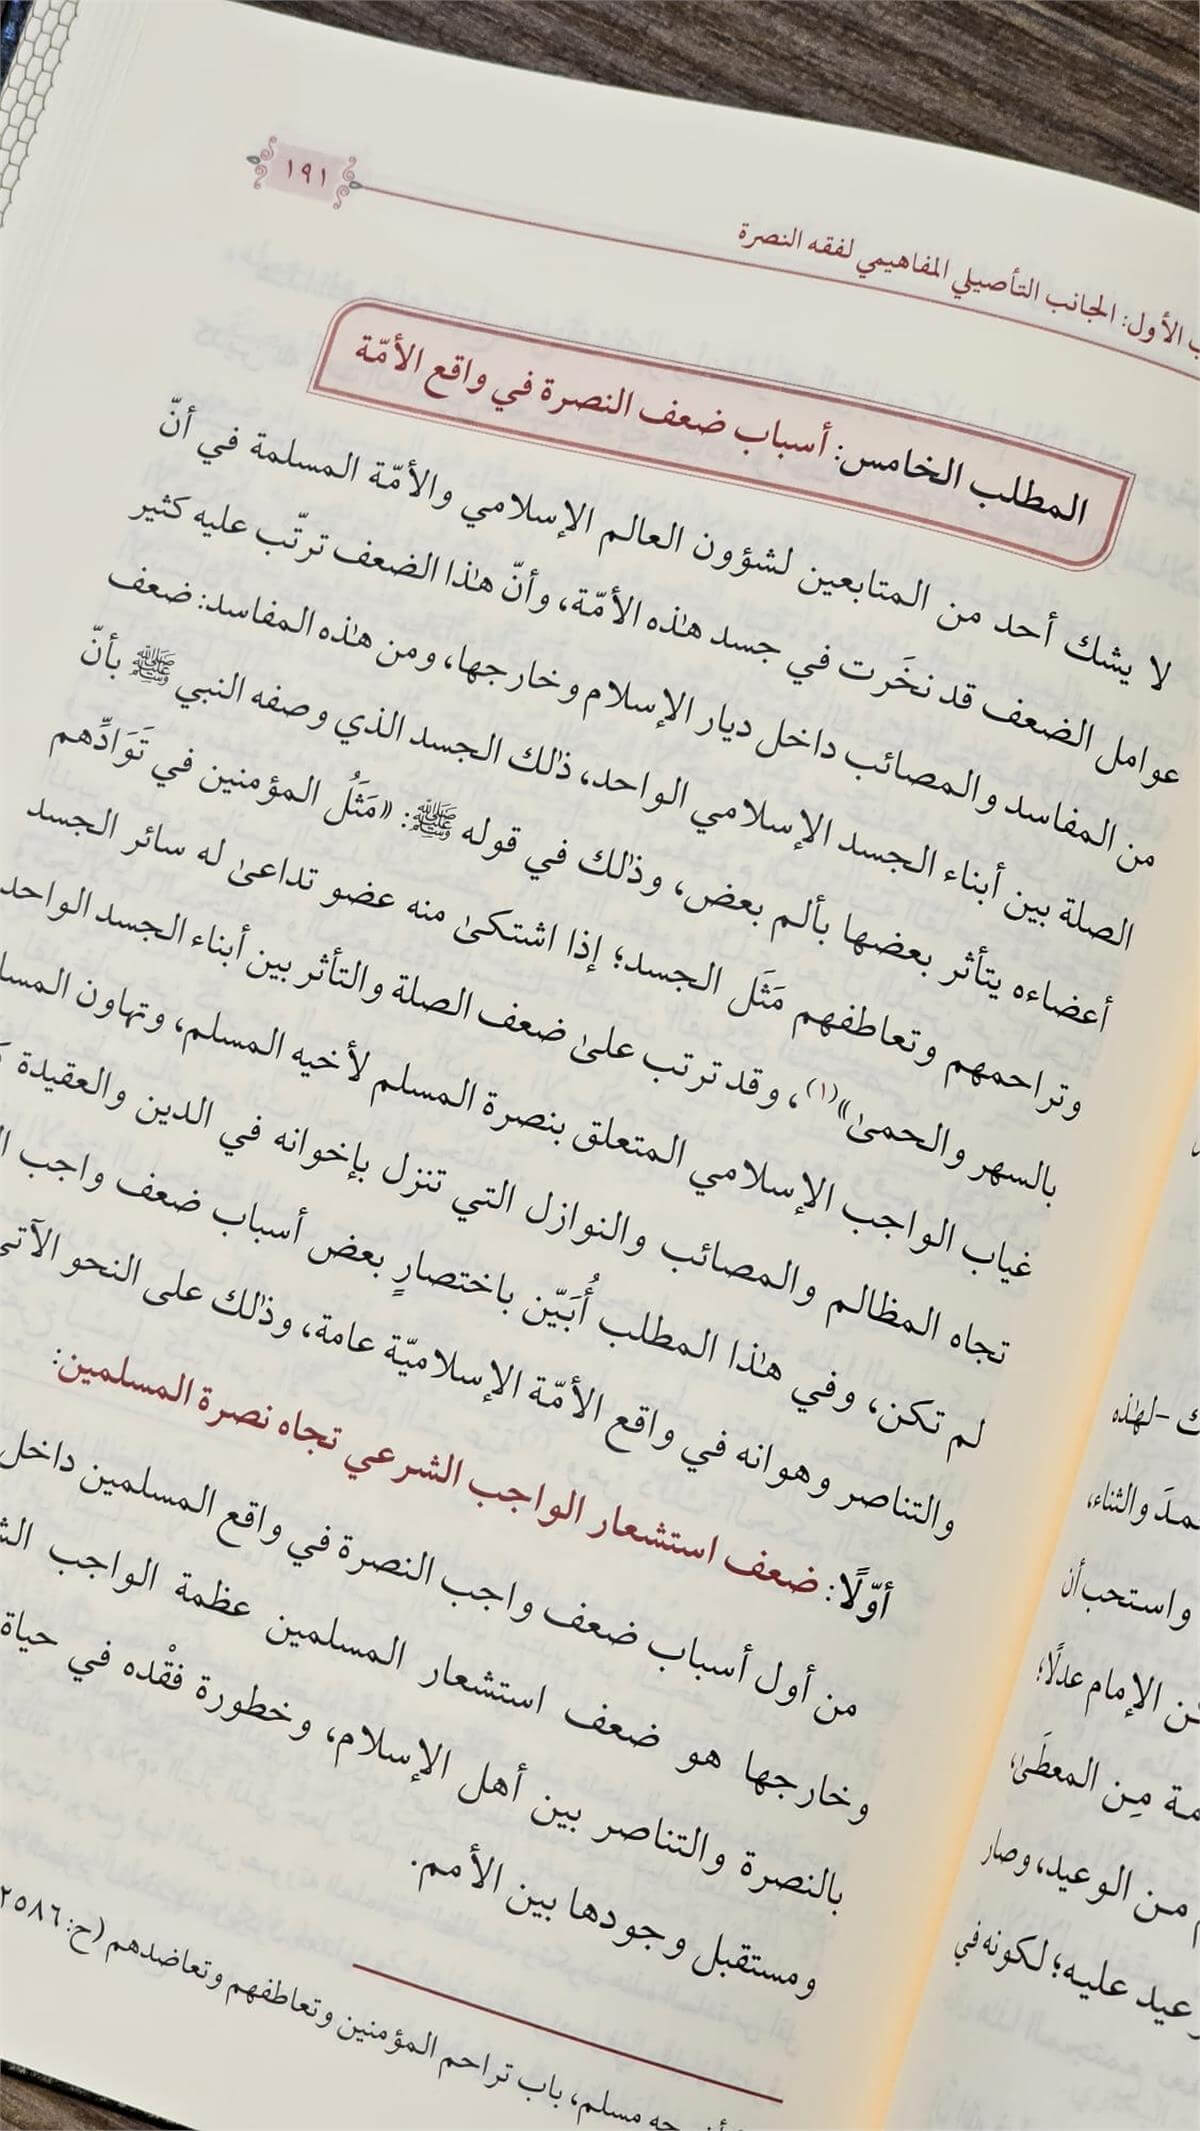 ١٩١
الأول: الجانب التأصيلي المفاهيمي لفقه النصرة
المطلب الخامس: أسباب ضعف النصرة في واقع الأمّة
لا يشك أحد من المتابعين لشؤون العالم الإسلامي والأمّة المسلمة في أنّ
عوامل الضعف قد نخَرت في جسد هٰذه الأمّة، وأنّ هٰذا الضعف ترتّب عليه كثير
من المفاسد والمصائب داخل ديار الإسلام وخارجها، ومن هٰذه المفاسد: ضعف
الصلة بين أبناء الجسد الإسلامي الواحد، ذٰلك الجسد الذي وصفه النبي ﷺ بأنّ
أعضاءه يتأثر بعضها بألم بعض، وذٰلك في قوله ﷺ: «مَثَلُ المؤمنين في تَوَادِّهم
وتراحمهم وتعاطفهم مَثَل الجسد؛ إذا اشتكىٰ منه عضو تداعىٰ له سائر الجسد
بالسهر والحمىٰ»(١)، وقد ترتب علىٰ ضعف الصلة والتأثر بين أبناء الجسد الواحد
غياب الواجب الإسلامي المتعلق بنصرة المسلم لأخيه المسلم، وتهاون
تجاه المظالم والمصائب والنوازل التي تنزل بإخوانه في الدين والعقيدة
لم تكن، وفي هٰذا المطلب أُبَيّن باختصارٍ بعض أسباب ضعف واجب
والتناصر وهوانه في واقع الأمّة الإسلاميّة عامة، وذٰلك على النحو
أوّلًا: ضعف استشعار الواجب الشرعي تجاه نصرة المسلمين:
من أول أسباب ضعف واجب النصرة في واقع المسلمين داخل
وخارجها هو ضعف استشعار المسلمين عظمة الواجب
بالنصرة والتناصر بين أهل الإسلام، وخطورة فقْده في حياة
ومستقبل وجودها بين الأمم.
مسلم، باب تراحم المؤمنين وتعاطفهم وتعاضدهم (ح: ٢٥٨٦
لهٰذه
والثناء،
واستحب أن
الإمام عدلًا؛
مِن المعطَىٰ،
من الوعيد، وصار
عليه؛ لكونه في